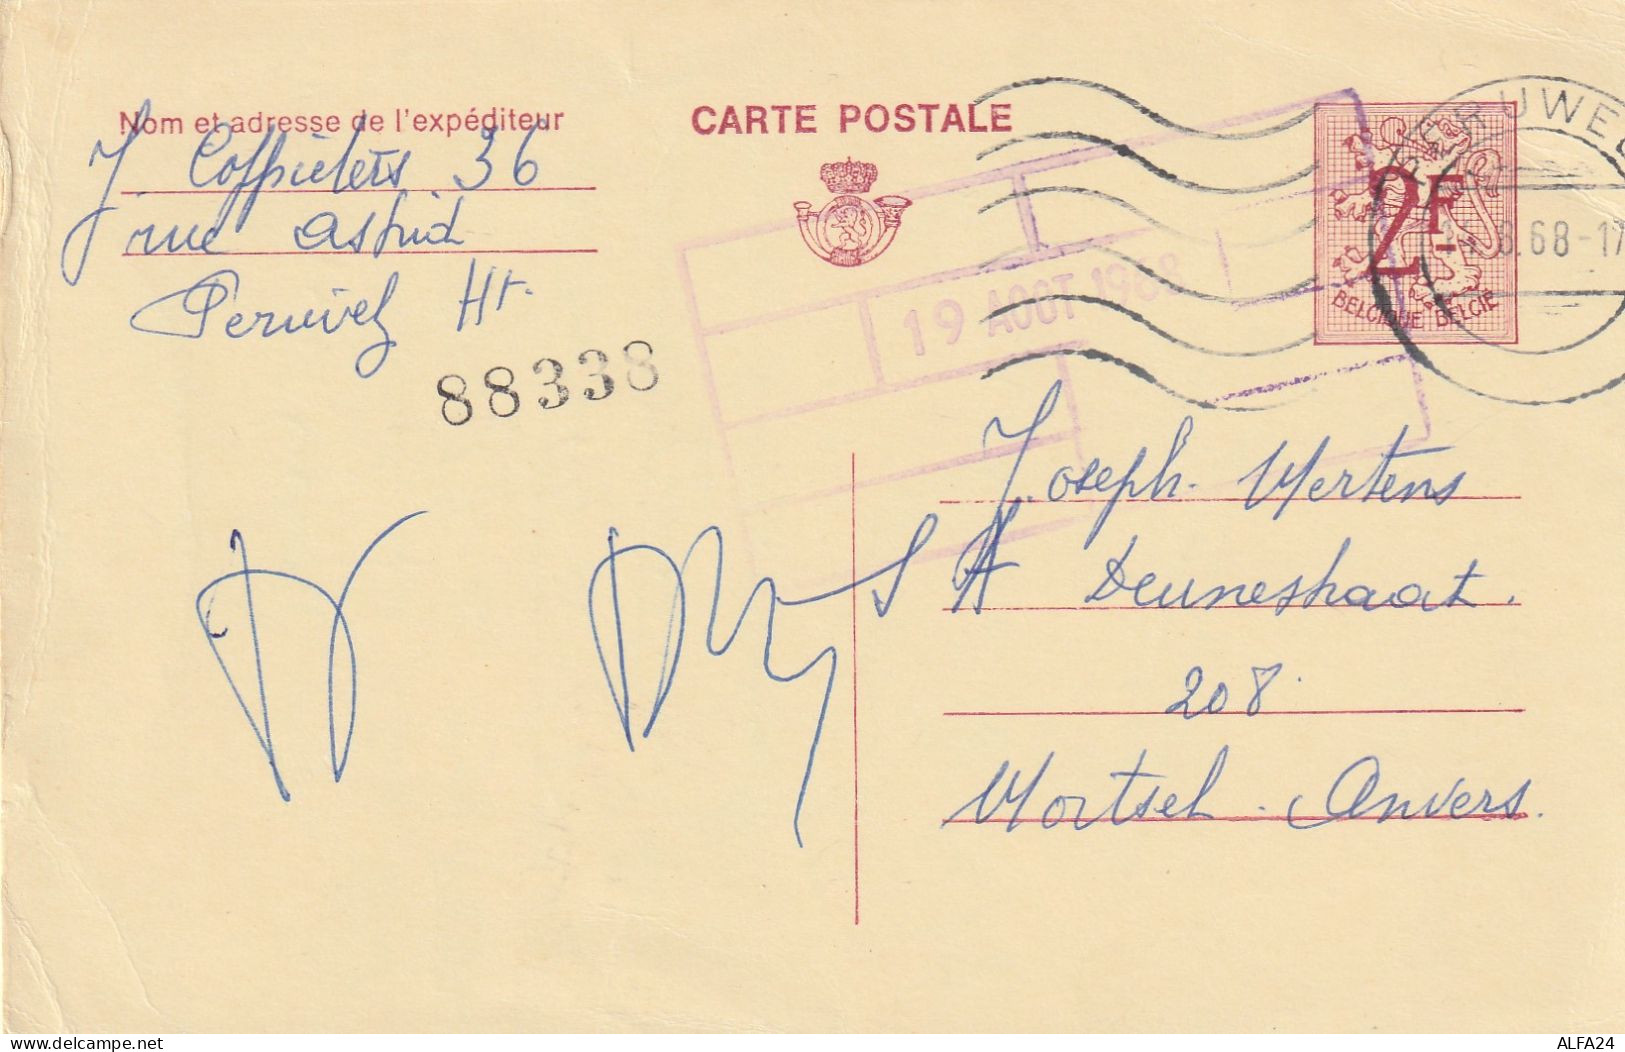 Nom et adresse de l'expéditeur
J Coppieters 36
rue astrid
Peruwelz Ht.
88338
CARTE POSTALE
19 AOUT 1968
2F
BELGIQUE BELGIE
PERUWEL
8.68-17
Joseph. Mertens
S A Deurnestraat.
208
Mortsel - Anvers.
delcampe.net
ALFA24